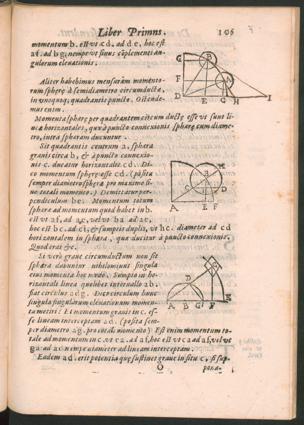 Liber Primus. 106
momentum b. est ut cd. ad de, hoc est
af. ad bg; nempe ut sinus complementi an-
gulorum eleuationis.
Aliter habebimus mensuram momento-
rum sphęrę à semidiametro circumductę,
in unoquoq; quadrantis puncto. Osten-
mus enim
Momenta sphęrę per quadrantem circum ductę esse ut sunt li-
neę horizontales, quę à puncto connexionis sphęrę cum diame-
tro, intra sphęram ducuntur.
Sit quadrantis centrum a, sphęra
grauis circa b, & à puncto connexio-
nis c. ducatur horizontalis cd. Di-
co momentum sphęrę esse cd. (posita
semper diametro sphęrę pro maximo si-
ue totali momento.) Demittatur per-
pendiculum be. Momentum totum
sphęrę ad momentum quod habet in b.
est ut af, ad ae, vel ut ba ad ae,
hoc est bc. ad ci, & sumptis duplis, ut hc. diameter ad cd
horizontalem in sphęra, quę ducitur à puncto connexionis.
Quod erat &c.
Si verò graue circumductum non sit
sphęra
eius momenta hoc modo. Sumpto in ho-
rizontali linea quolibet interuallo ab.
fiat circulus adg.
singula singularum eleuationum momen-
ta metiri: Et momentum grauis in c. es-
se lineam interceptam ad. (posita sem-
per diametro ag. pro totali momento) Est enim momentum to-
tale ad momentum in c. ut ca. ad af, hoc est ut ca ad af, vel ut
ga ad ad nempe ut diameter ad lineam interceptam.
Eadem ad. erit potentia quę sustinet graue in situ c, si sup-
O pona-